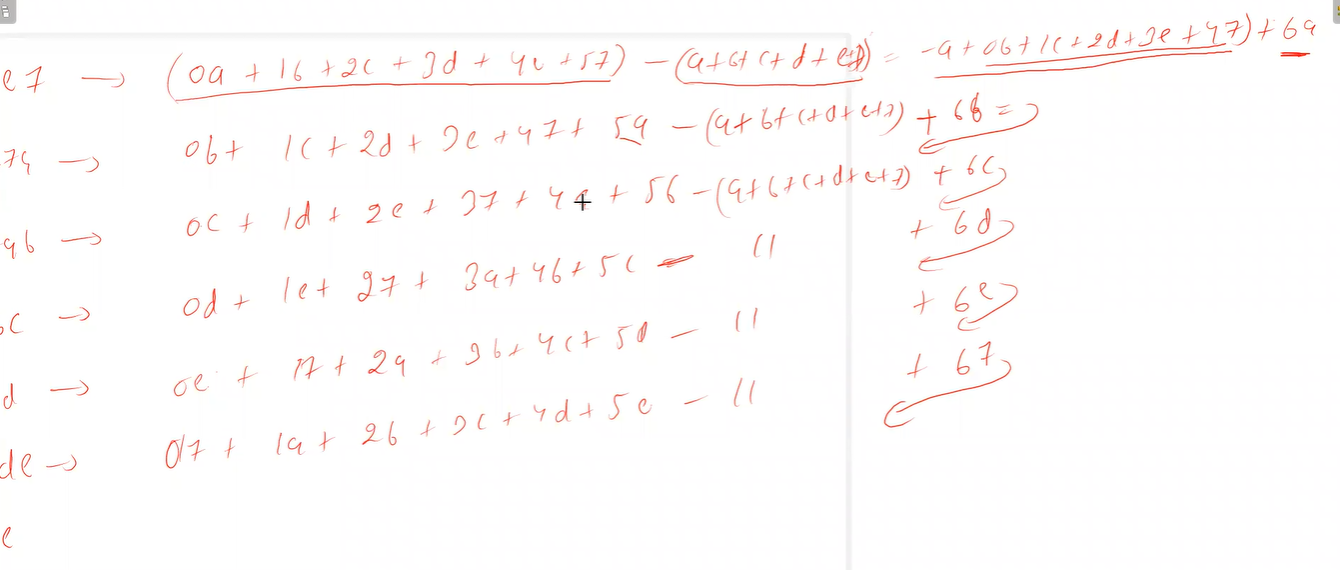 ef → (0a + 1b + 2c + 3d + 4e + 5f) - (a+b+c+d+e+f) = -a + 0b + 1c + 2d + 3e + 4f) + 6a
fa → 0b + 1c + 2d + 3e + 4f + 5a - (a+b+c+d+e+f) + 6b =
ab → 0c + 1d + 2e + 3f + 4a + 5b - (a+b+c+d+e+f) + 6c
bc → 0d + 1e + 2f + 3a + 4b + 5c - 11 + 6d
d → 0e + 1f + 2a + 3b + 4c + 5d - 11 + 6e
de → 0f + 1a + 2b + 3c + 4d + 5e - 11 + 6f
e